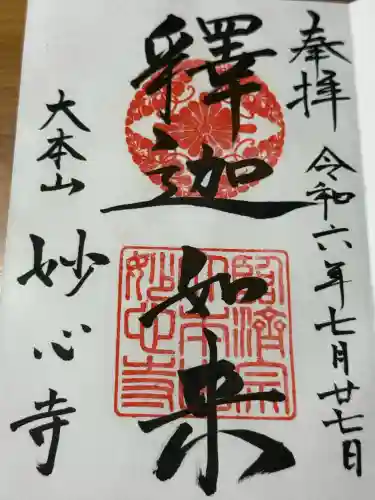 奉拝
令和六年七月廿七日
釋迦如来
大本山
妙心寺
臨済宗
大本山
妙心寺